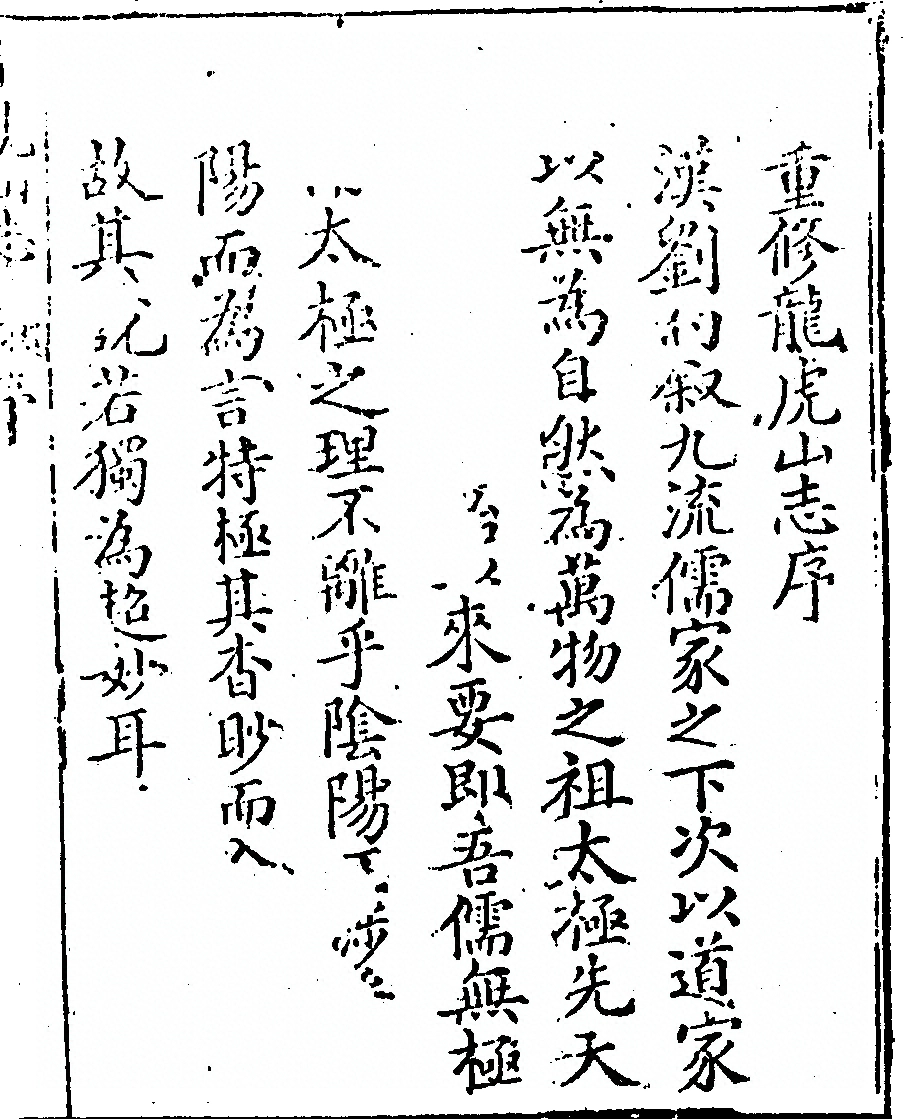 重修龍虎山志序
漢劉向叙九流儒家之下次以道家
以無為自然為萬物之祖太極先天
以來要即吾儒無極
太極之理不離乎陰陽不涉
陽而為言特極其杳眇而入
故其說若獨為超妙耳